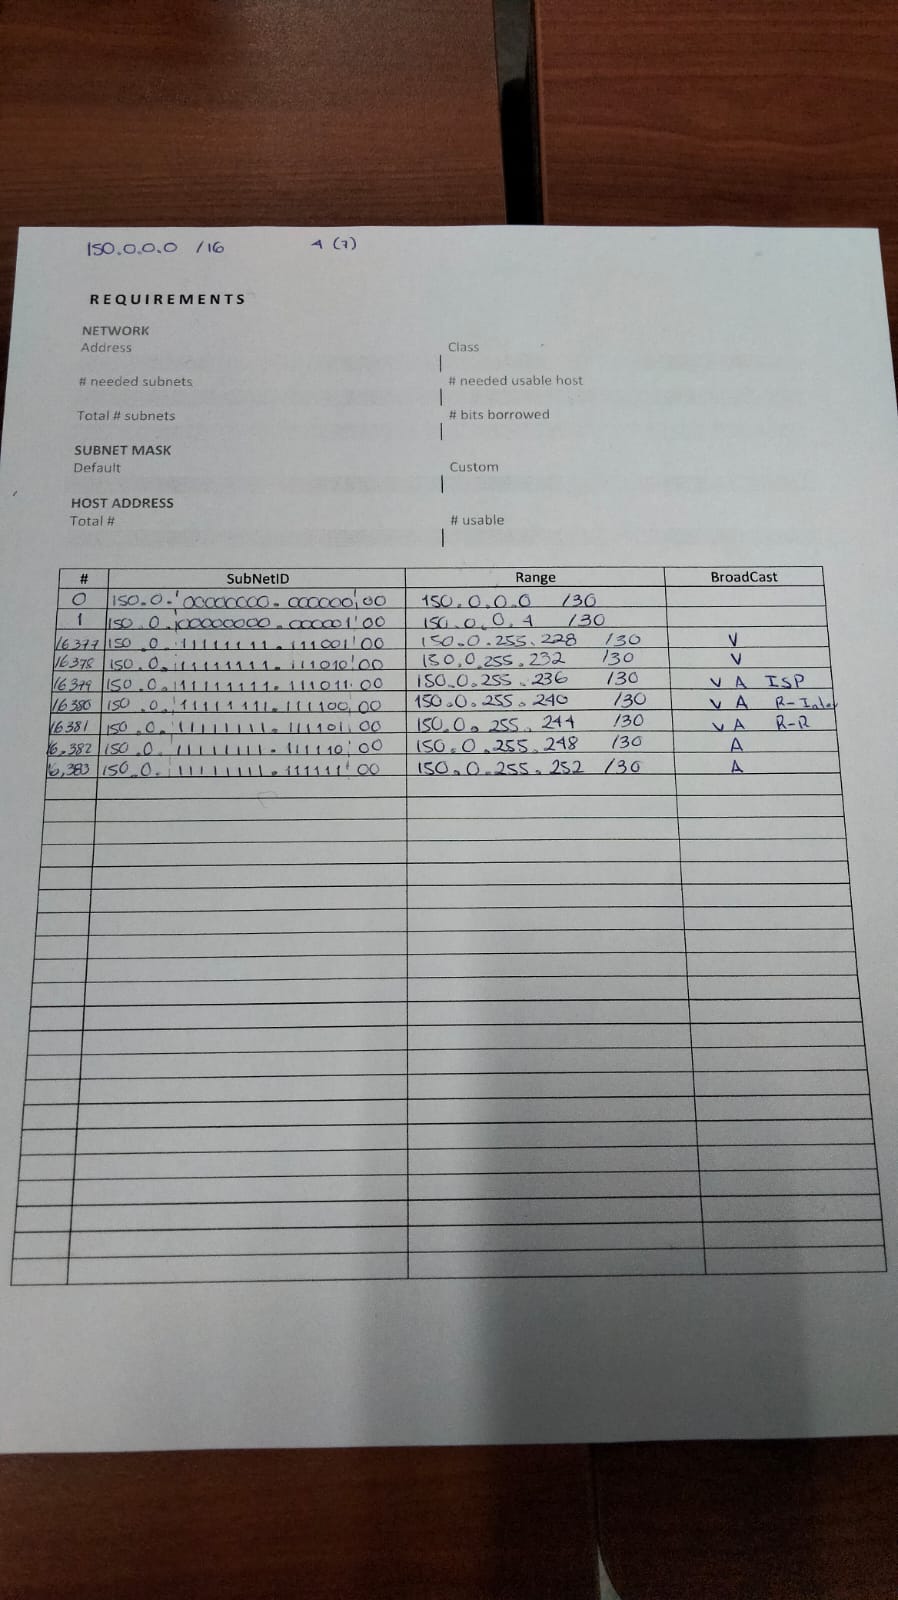 150.0.0.0 /16 4 (7)
REQUIREMENTS
NETWORK
Address Class
# needed subnets # needed usable host
Total # subnets # bits borrowed
SUBNET MASK
Default Custom
HOST ADDRESS
Total # # usable
# SubNetID Range BroadCast
0 150.0.00000000.000000,00 150.0.0.0 /30
1 150.0.00000000.000001'00 150.0.0.4 /30
16377 150.0.11111111.111001'00 150.0.255.228 /30 V
16378 150.0.11111111.111010'00 150.0.255.232 /30 V
16379 150.0.11111111.111011.00 150.0.255.236 /30 V A ISP
16380 150.0.11111111.111100,00 150.0.255.240 /30 V A
16381 150.0.11111111.111101,00 150.0.255.244 /30 V A R-R
16,382 150.0.11111111.111110'00 150.0.255.248 /30 A
16,383 150.0.11111111.111111'00 150.0.255.252 /30 A